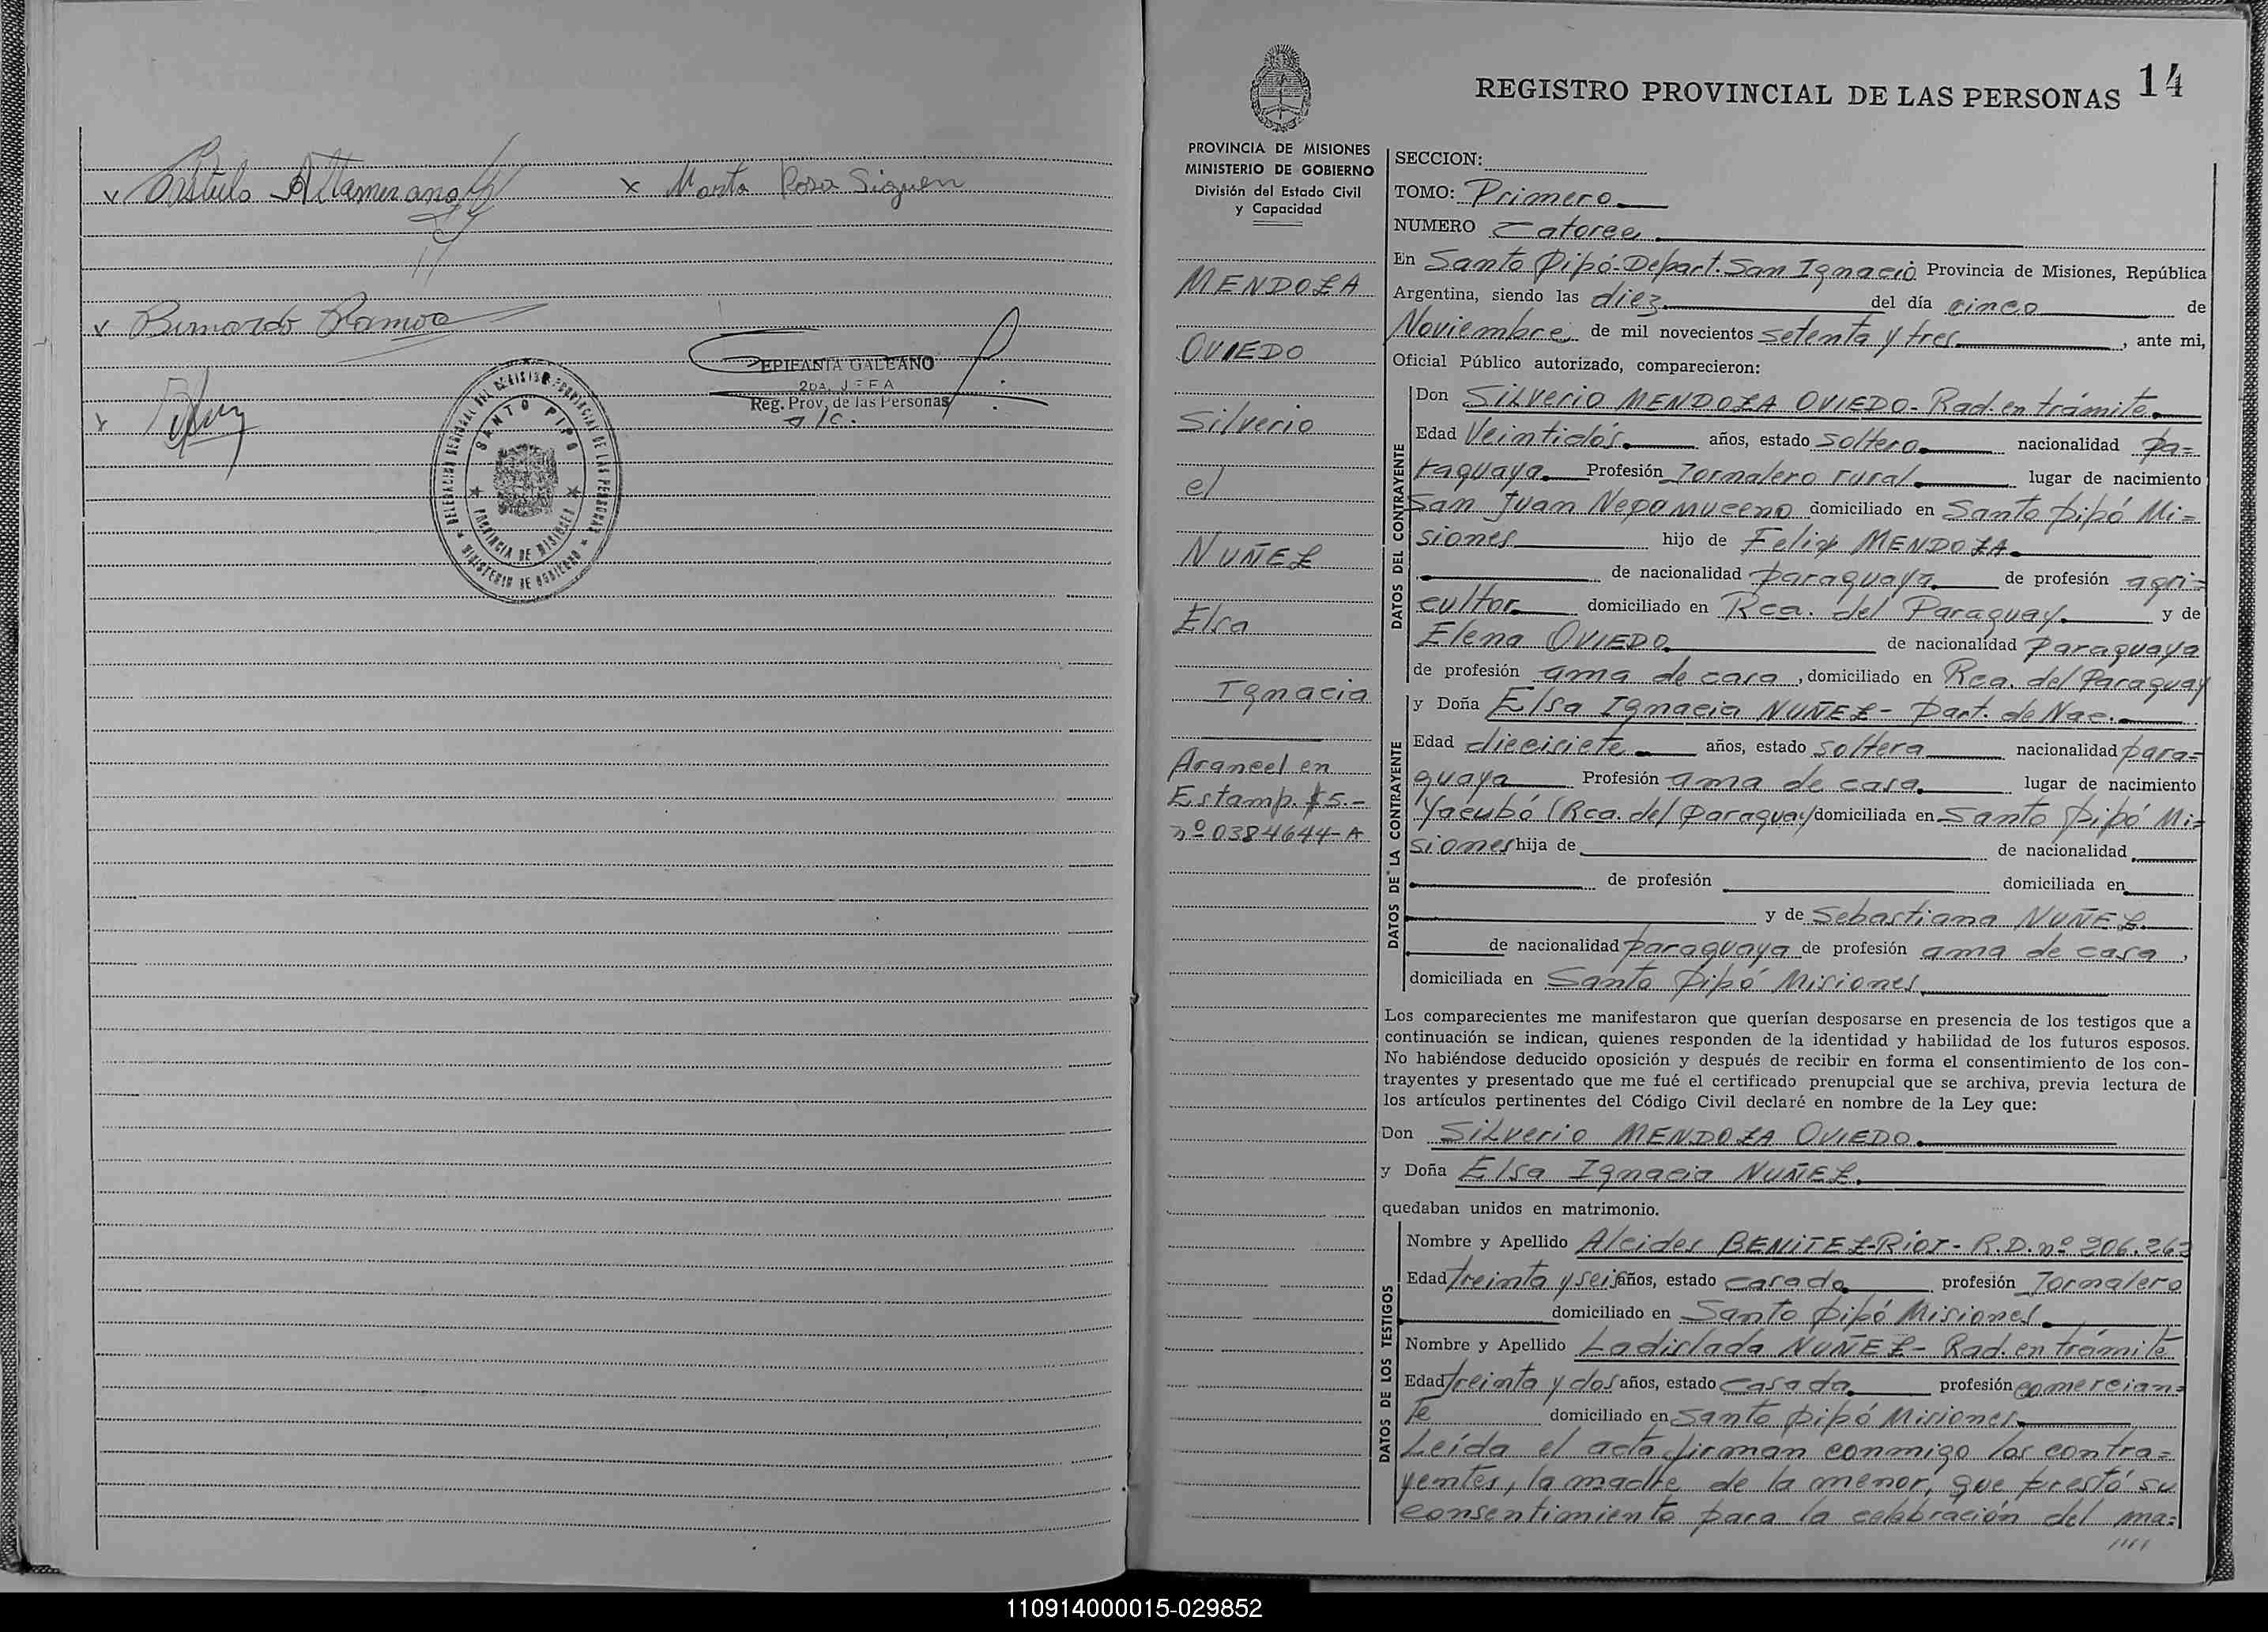 x Altamirano x Marta Rosa Siguen
x Bernardo Ramos
EPIFANIA GALEANO
2DA. JEFA
Reg. Prov. de las Personas
a/c.
x
DELEGACION REGIONAL DEL REGISTRO PROVINCIAL DE LAS PERSONAS
SANTO PIPO
PROVINCIA DE MISIONES
MINISTERIO DE GOBIERNO
REGISTRO PROVINCIAL DE LAS PERSONAS 14
PROVINCIA DE MISIONES
MINISTERIO DE GOBIERNO
División del Estado Civil
y Capacidad
MENDOZA
OVIEDO
Silverio
el
NUÑEZ
Elsa
Ignacia
Arancel en
Estamp. $5.-
nº 0384644-A
SECCION:
TOMO: Primero
NUMERO Catorce
En Santo Pipó-Depart. San Ignacio Provincia de Misiones, República
Argentina, siendo las diez del día cinco de
Noviembre de mil novecientos setenta y tres, ante mi,
Oficial Público autorizado, comparecieron:
DATOS DEL CONTRAYENTE
Don Silverio MENDOZA OVIEDO- Rad. en trámite
Edad Veintidós años, estado soltero nacionalidad pa=
raguaya Profesión Jornalero rural lugar de nacimiento
San Juan Nepomuceno domiciliado en Santo Pipó Mi=
siones hijo de Felix MENDOZA
de nacionalidad paraguaya de profesión agri=
cultor domiciliado en Rca. del Paraguay y de
Elena OVIEDO de nacionalidad paraguaya
de profesión ama de casa, domiciliado en Rca. del Paraguay
DATOS DE LA CONTRAYENTE
y Doña Elsa Ignacia NUÑEZ- Part. de Nac.
Edad diecisiete años, estado soltera nacionalidad para=
guaya Profesión ama de casa lugar de nacimiento
Yacubó (Rca. del Paraguay) domiciliada en Santo Pipó Mi=
siones hija de de nacionalidad
de profesión domiciliada en
y de Sebastiana NUÑEZ
de nacionalidad paraguaya de profesión ama de casa,
domiciliada en Santo Pipó Misiones
Los comparecientes me manifestaron que querían desposarse en presencia de los testigos que a
continuación se indican, quienes responden de la identidad y habilidad de los futuros esposos.
No habiéndose deducido oposición y después de recibir en forma el consentimiento de los con-
trayentes y presentado que me fué el certificado prenupcial que se archiva, previa lectura de
los artículos pertinentes del Código Civil declaré en nombre de la Ley que:
Don Silverio MENDOZA OVIEDO
y Doña Elsa Ignacia NUÑEZ
quedaban unidos en matrimonio.
DATOS DE LOS TESTIGOS
Nombre y Apellido Alcides BENITEZ-RIOS- R.D. nº 206.263
Edad treinta y seis años, estado casado profesión Jornalero
domiciliado en Santo Pipó Misiones
Nombre y Apellido Ladislada NUÑEZ- Rad. en trámite
Edad treinta y dos años, estado casada profesión comercian=
te domiciliado en Santo Pipó Misiones
Leída el acta firman conmigo los contra=
yentes, la madre de la menor, que prestó su
consentimiento para la celebración del ma=
////
110914000015-029852